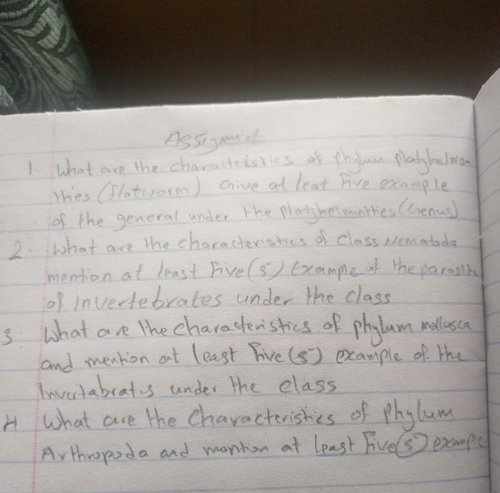 Assignment
1. What are the characteristics of phylum platyhelmin
thies (flatworm) Give at leat five example
of the general under the platyhelminthes (Genus)
2. What are the characteristics of class Nematoda
mention at least Five (5) Example of the parasit
of Invertebrates under the class
3 What are the characteristics of phylum mollusca
and mention at least five (5) example of the
Invertabrates under the class
4 What are the characteristics of phylum
Arthropoda and mention at least Five (5) example